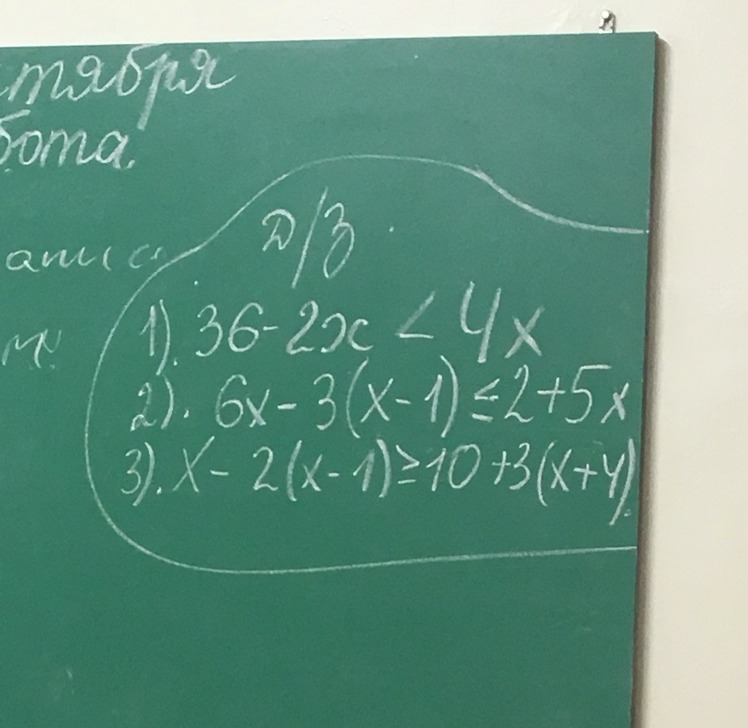 тября
бота.
Д/З.
1). 36-2x < 4x
2). 6x-3(x-1)≤2+5x
3). x-2(x-1)≥10+3(x+4).